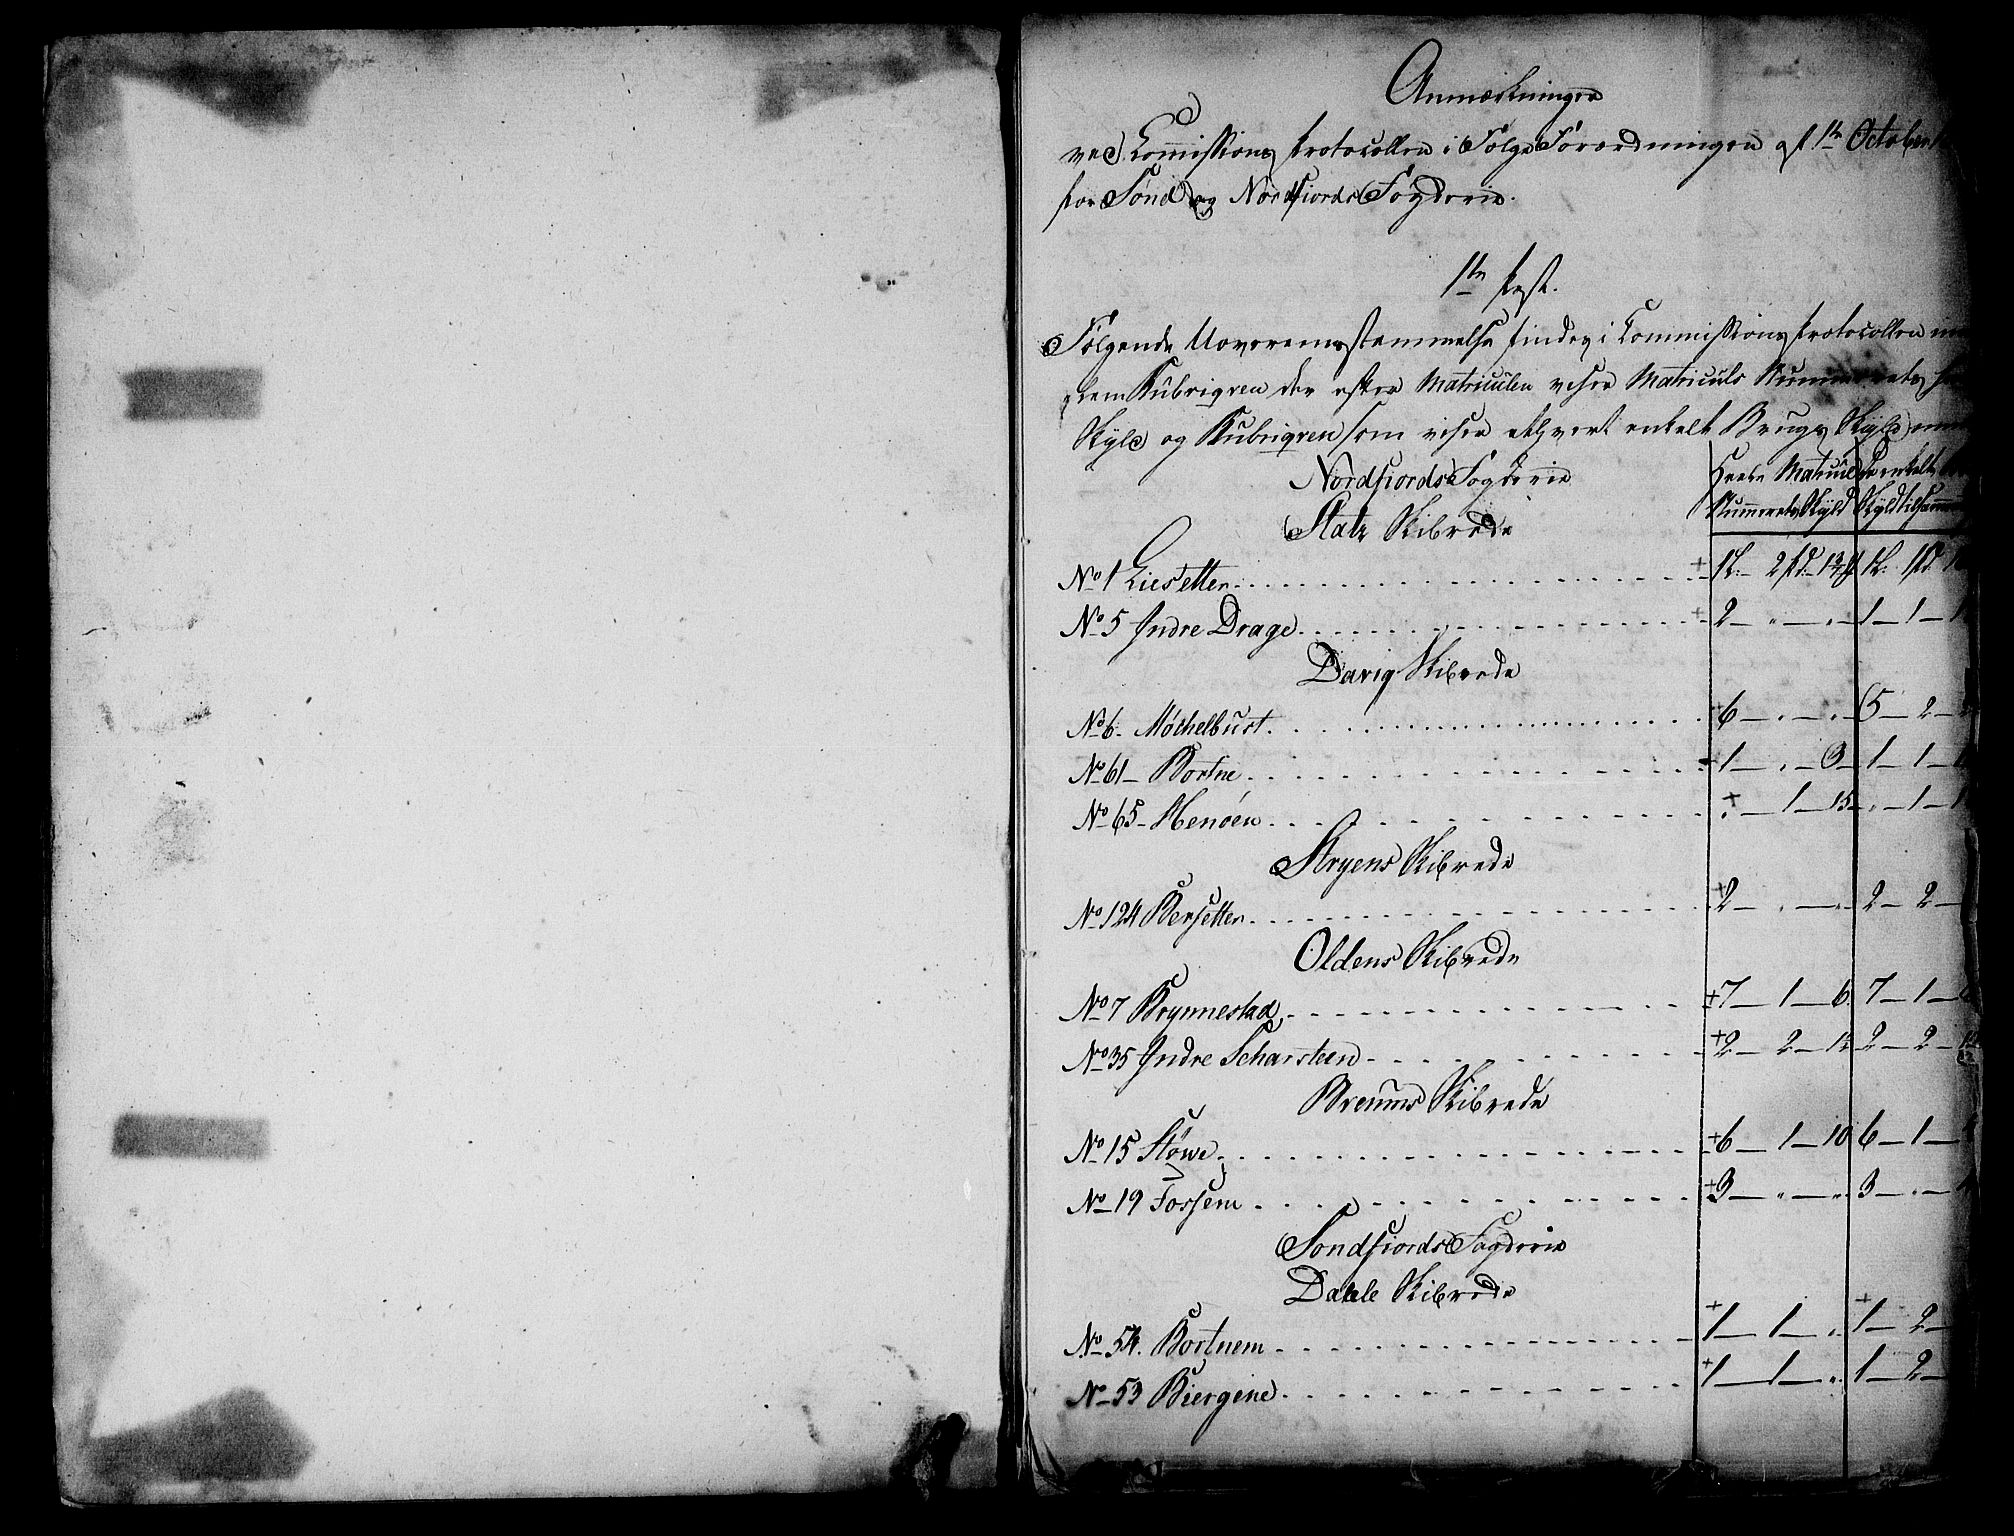 Anmærkninger
ved Commissions Protocollen i Følge Forordningen af 1te October
for Sønd og Nordfiords Fogderie.
1te Post.
Følgende Uoverensstemmelse findes i Commissions Protocollen
Rubriqven der efter Matriculen viser Matriculs Nummerets
Skyld og Rubriqven som viser ethvert enkelt Brugs Skyld
Nordfiords Fogderie
Heele Matricul De enkelte
Nummerets Skyld Skyld tilsammen
Stats Skibrede
No 1 Liesetter + 1 L. 2 pd. 13 1 L. 1 pd
No 5 Indre Drage + 2 — " — " — 1 — 1 —
Davig Skibrede
No 6. Møchelbust + 6 — " — " — 5 — 2 —
No 61 — Bortne + 1 — " — 3 — 1 — 1 —
No 65 — Henøen + " 1 — 15 — " — 1 —
Stryens Skibrede
No 124 Bersetten + 2 — " — " — 2 — 2 —
Oldens Skibrede
No 7 Brynnestad + 7 — 1 — 6 7 — 1 —
No 35 Indre Scharsteen + 2 — 2 — 12 2 — 2 —
Breums Skibrede
No 15 Støwe + 6 — 1 — 10 6 — 1 —
No 19 Fossem + 3 — " — " 3 — " —
Sondfiords Fogderie
Dahle Skibrede
No 54. Bortnem + 1 — 1 — " + 1 — 2 —
No 53 Biergine + 1 — 1 — " 1 — 2 —